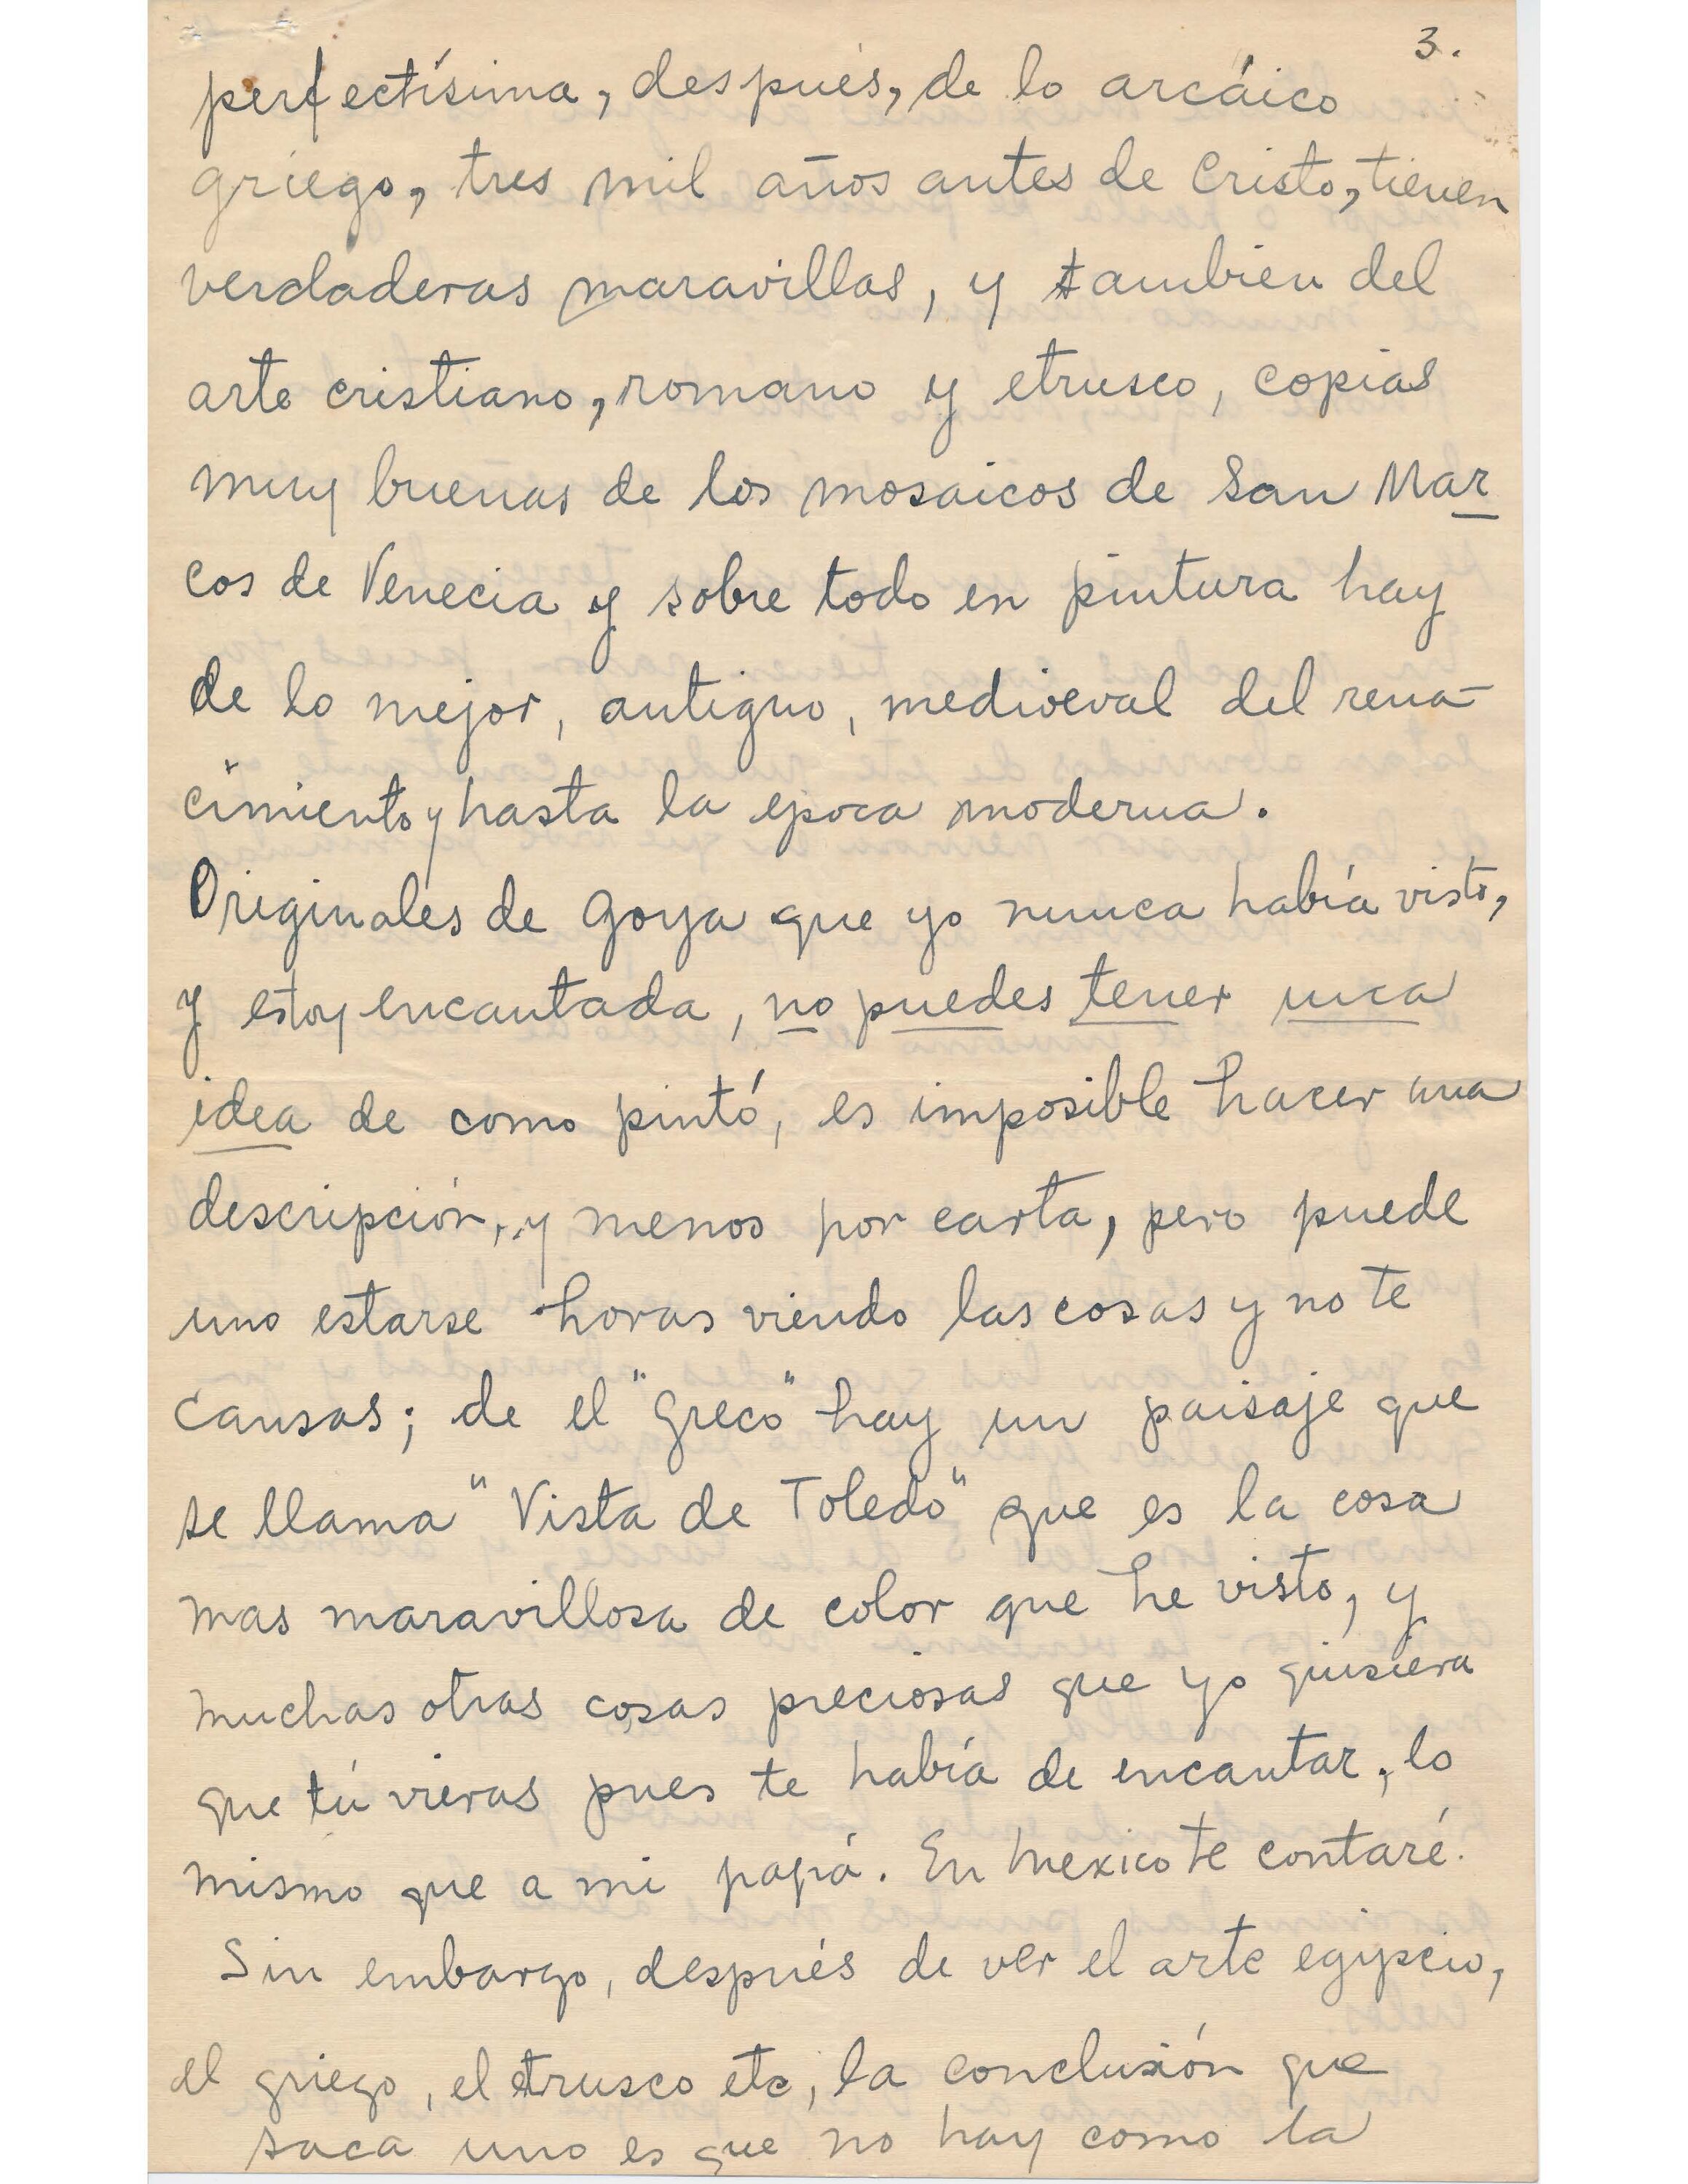 3.
perfectísima, después, de lo arcáico
griego, tres mil años antes de Cristo, tienen
verdaderas maravillas, y tambien del
arte cristiano, romano y etrusco, copias
muy buenas de los mosaicos de San Mar
cos de Venecia y sobre todo en pintura hay
de lo mejor, antiguo, medioeval del rena-
cimiento y hasta la epoca moderna.
Originales de Goya que yo nunca había visto,
y estoy encantada, no puedes tener unca
idea de como pintó, es imposible hacer una
descripción, y menos por carta, pero puede
uno estarse horas viendo las cosas y no te
cansas; de el "Greco" hay un paisaje que
se llama "Vista de Toledo" que es la cosa
mas maravillosa de color que he visto, y
muchas otras cosas preciosas que yo quisiera
que tú vieras pues te había de encantar, lo
mismo que a mi papá. En Mexico te contaré.
Sin embargo, después de ver el arte egipcio,
el griego, el etrusco etc, la conclusión que
saca uno es que no hay como la